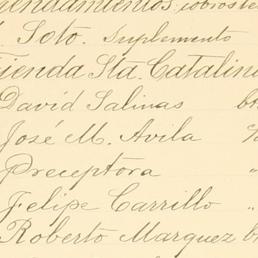 Soto. Suplemento
Sta. Catalina
David Salinas
José M. Avila
Preceptora "
Felipe Carrillo "
Roberto Marquez